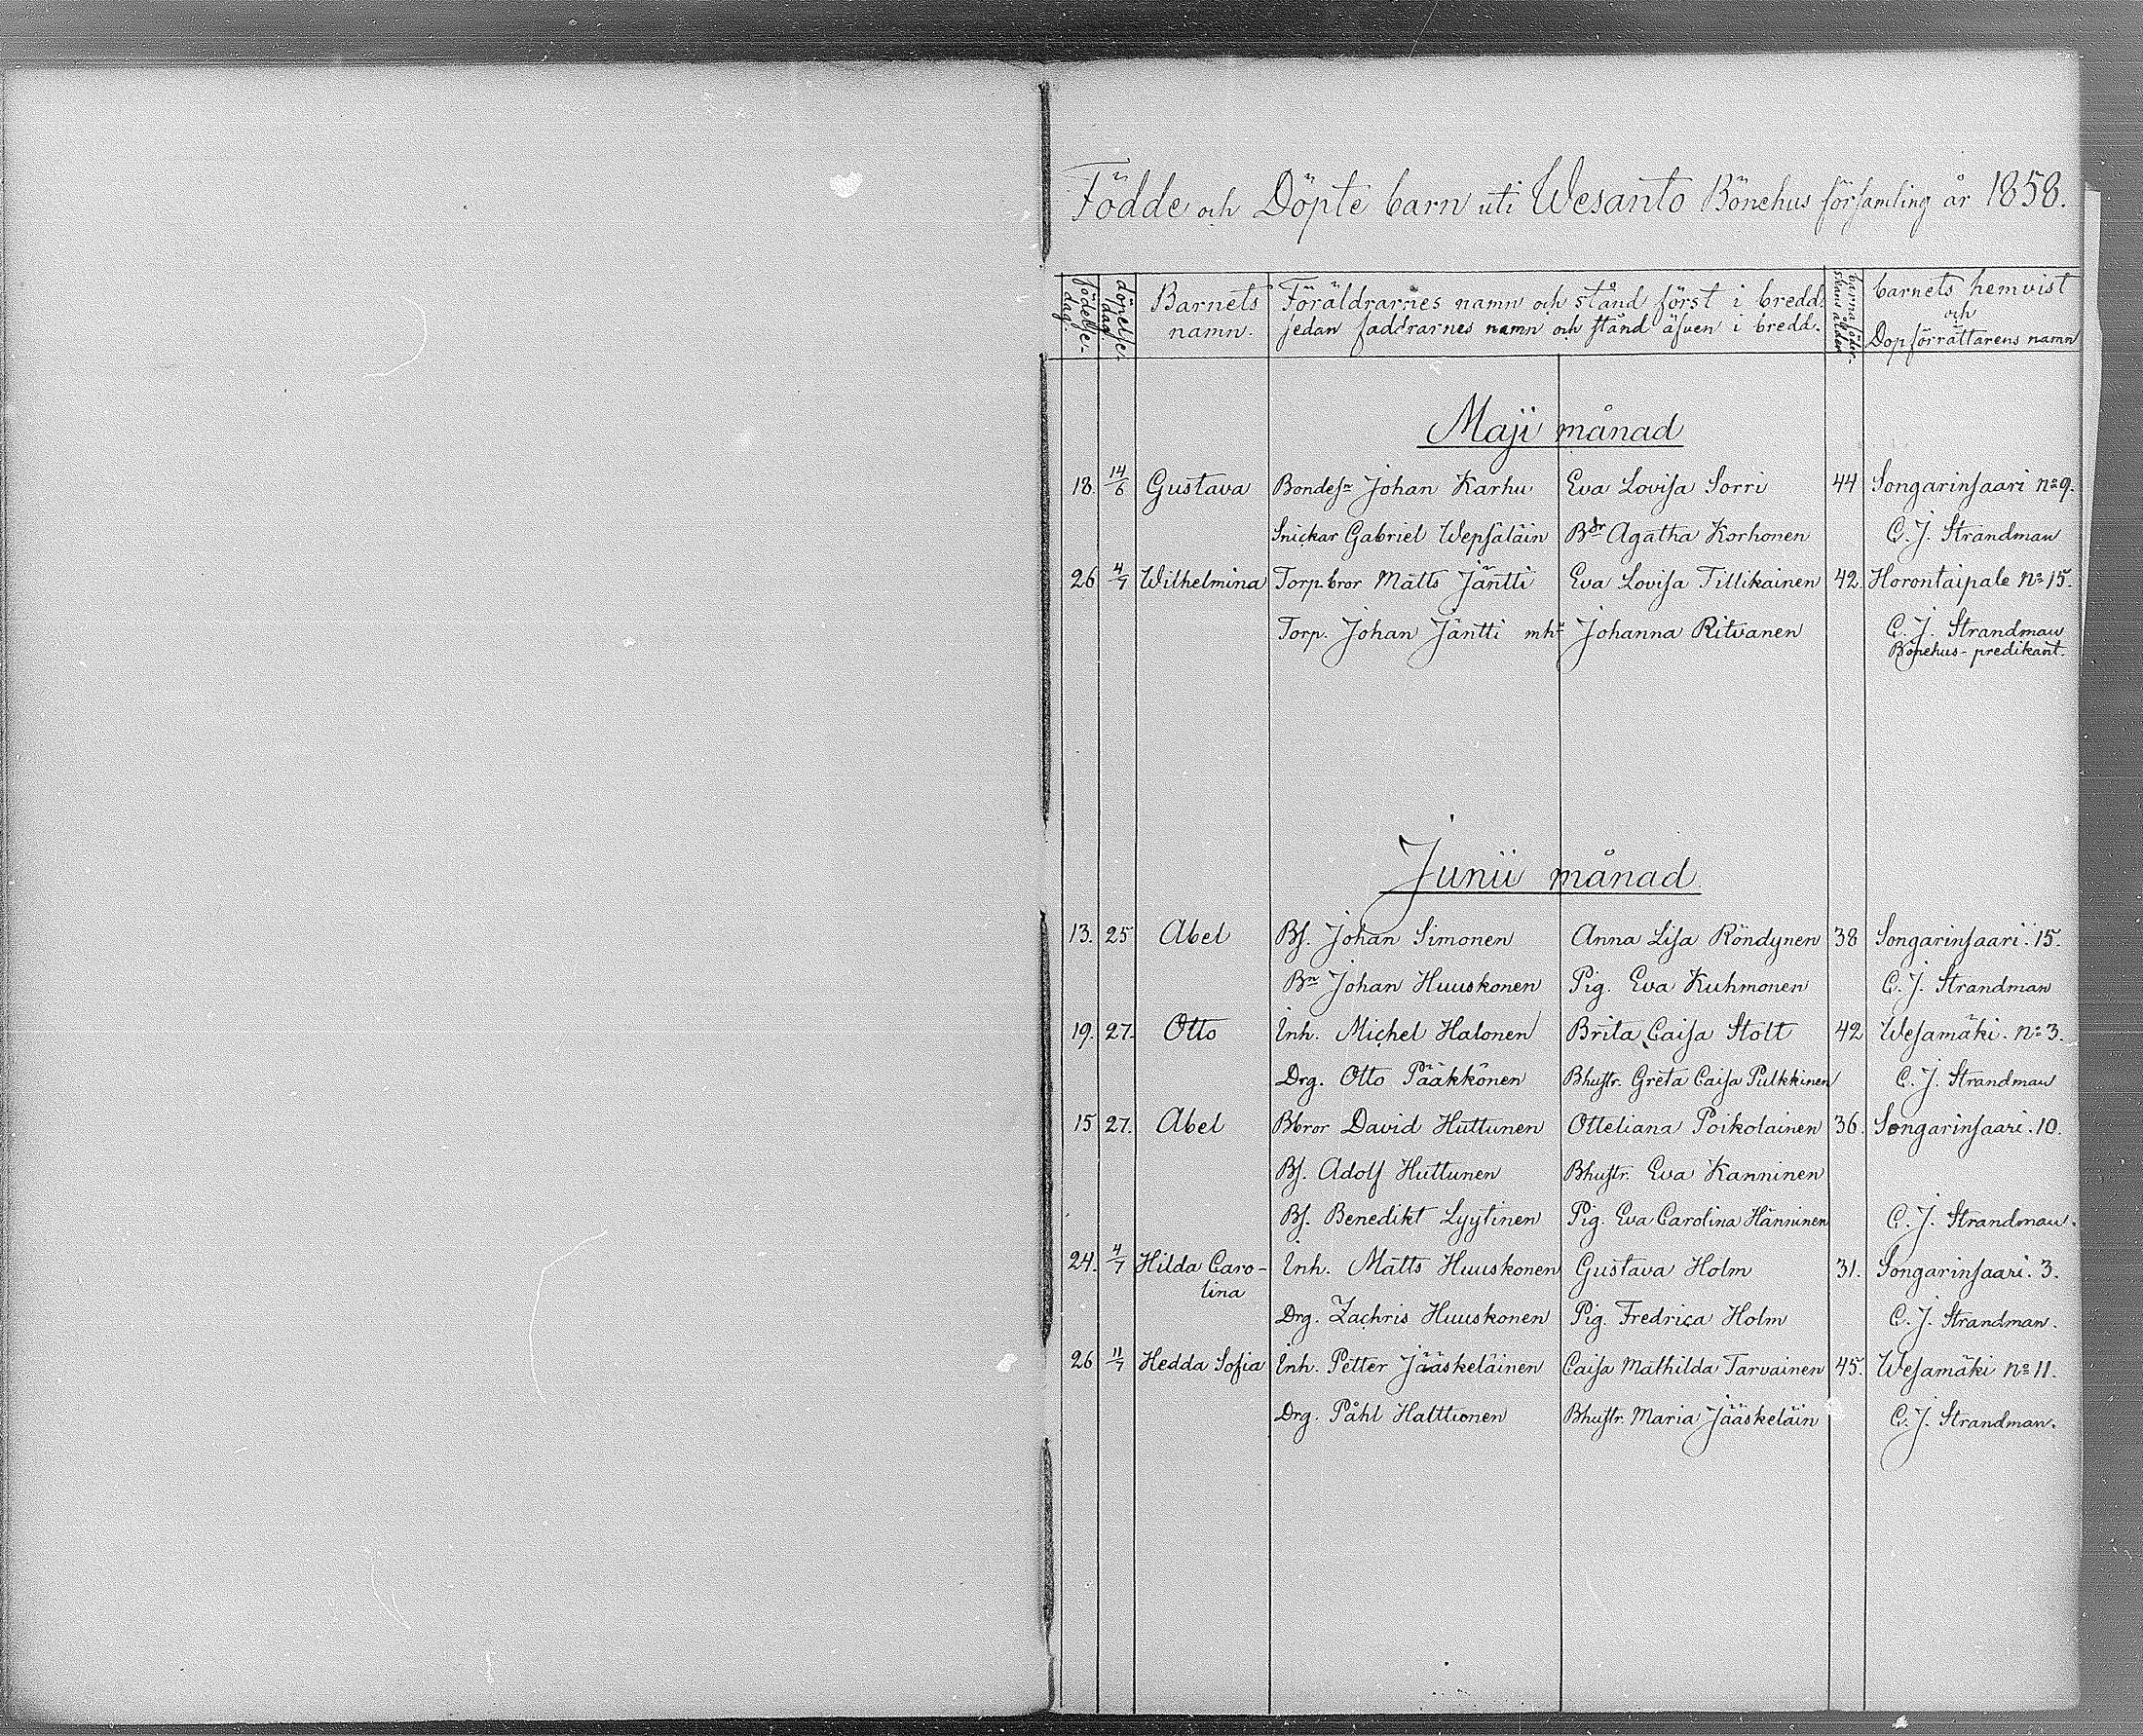 Födde och Döpte barn uti Wesanto Bönehus församling år 1858.
födelse-dag. döpelse-dag. Barnets namn. Föräldrarnes namn och stånd först i bredd, sedan faddrarnes namn och stånd äfven i bredd. barnaföderskans ålder barnets hemvist och Dopförrättarens namn
Maji månad
18. 14/6 Gustava Bondesn Johan Karhu Eva Lovisa Sorri 44 Songarinsaari No 9.
Snickar Gabriel Wepsäläin Bdr Agatha Korhonen C. J. Strandman
26 4/7 Wilhelmina Torp.bror Matts Jäntti Eva Lovisa Tillikainen 42. Horontaipale No 15.
Torp. Johan Jäntti mhu Johanna Ritvanen C. J. Strandman
Bönehus-predikant.
Junii månad
13. 25 Abel Bs. Johan Simonen Anna Lisa Röndynen 38 Songarinsaari. 15.
Bn Johan Huuskonen Pig. Eva Kuhmonen C. J. Strandman
19. 27. Otto Inh. Michel Halonen Brita Caisa Stolt 42 Wesamäki. No 3.
Drg. Otto Pääkkönen Bhustr. Greta Caisa Pulkkinen C. J. Strandman
15 27. Abel Bbror David Huttunen Otteliana Poikolainen 36. Songarinsaari. 10.
Bs. Adolf Huttunen Bhustr. Eva Kanninen
Bs. Benedikt Lyytinen Pig. Eva Carolina Hänninen C. J. Strandman.
24. 4/7 Hilda Caro- Inh. Matts Huuskonen Gustava Holm 31. Songarinsaari. 3.
lina
Drg. Zachris Huuskonen Pig. Fredrica Holm C. J. Strandman.
26 11/7 Hedda Sofia Inh. Petter Jääskeläinen Caisa Mathilda Tarvainen 45. Wesamäki No 11.
Drg. Påhl Halttuonen Bhustr. Maria Jääskeläin C. J. Strandman.